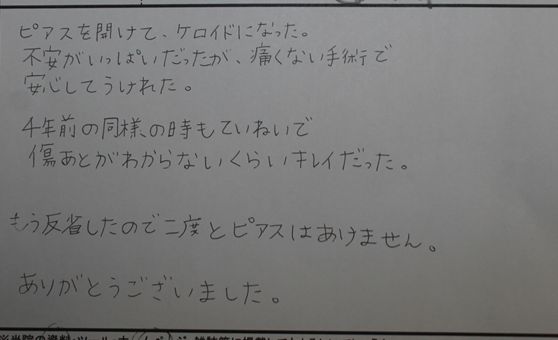 ピアスを開けて、ケロイドになった。
不安がいっぱいだったが、痛くない手術で
安心してうけれた。
4年前の同様の時もていねいで
傷あとがわからないくらいキレイだった。
もう反省したので二度とピアスはあけません。
ありがとうございました。